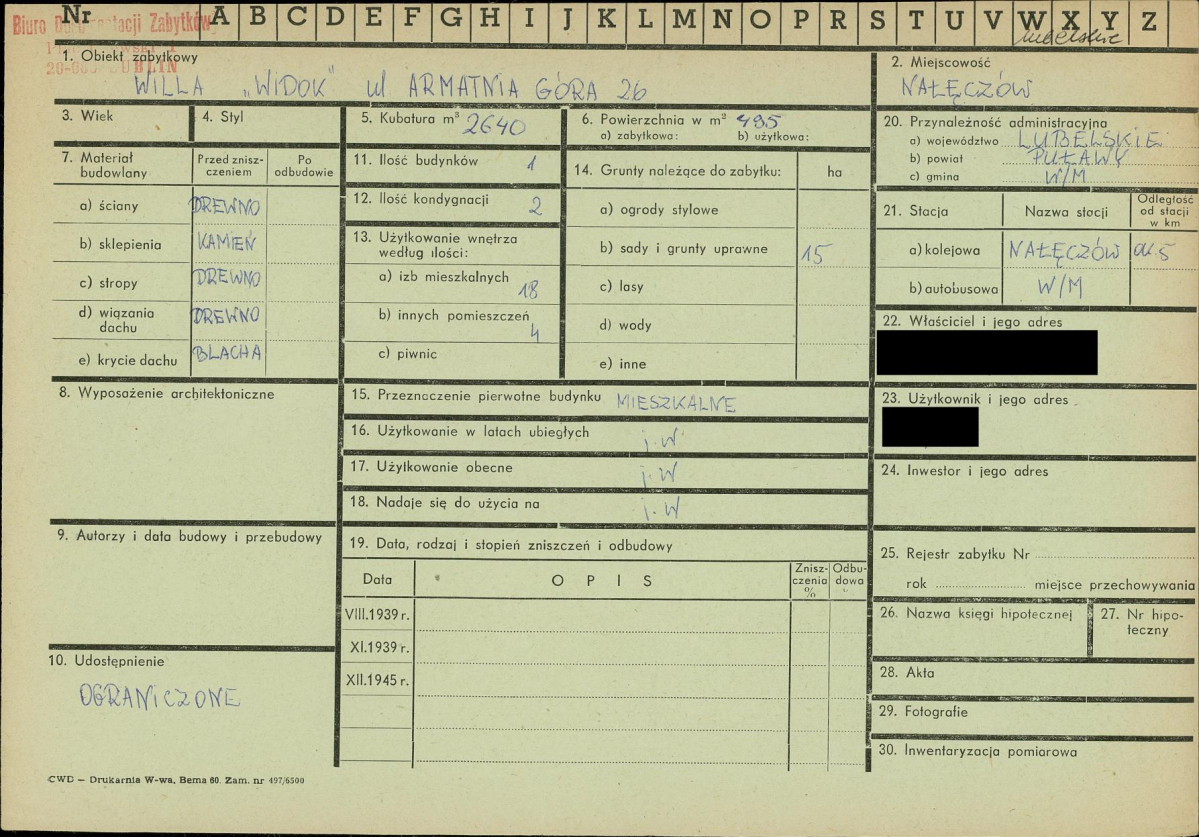 Nr A B C D E F G H I J K L M N O P R S T U V W X Y Z
Biuro Dokumentacji Zabytków
LUBLIN
lubelskie
1. Obiekt zabytkowy
WILLA „WIDOK" ul ARMATNIA GÓRA 26
2. Miejscowość
NAŁĘCZÓW
3. Wiek
4. Styl
5. Kubatura m³ 2640
6. Powierzchnia w m² 495
a) zabytkowa: b) użytkowa:
20. Przynależność administracyjna
a) województwo LUBELSKIE
b) powiat PUŁAWY
c) gmina W/M
7. Materiał budowlany
Przed zniszczeniem
Po odbudowie
a) ściany DREWNO
b) sklepienia KAMIEŃ
c) stropy DREWNO
d) wiązania dachu DREWNO
e) krycie dachu BLACHA
11. Ilość budynków 1
12. Ilość kondygnacji 2
13. Użytkowanie wnętrza
według ilości:
a) izb mieszkalnych 18
b) innych pomieszczeń 4
c) piwnic
14. Grunty należące do zabytku: ha
a) ogrody stylowe
b) sady i grunty uprawne 15
c) lasy
d) wody
e) inne
21. Stacja Nazwa stacji Odległość od stacji w km
a) kolejowa NAŁĘCZÓW ok. 5
b) autobusowa W/M
22. Właściciel i jego adres
8. Wyposażenie architektoniczne
15. Przeznaczenie pierwotne budynku MIESZKALNE
16. Użytkowanie w latach ubiegłych j.w
17. Użytkowanie obecne j.w
18. Nadaje się do użycia na j.w
23. Użytkownik i jego adres
24. Inwestor i jego adres
9. Autorzy i data budowy i przebudowy
19. Data, rodzaj i stopień zniszczeń i odbudowy
Data OPIS Zniszczenia % Odbudowa
VIII.1939 r.
XI.1939 r.
XII.1945 r.
25. Rejestr zabytku Nr
rok miejsce przechowywania
26. Nazwa księgi hipotecznej
27. Nr hipoteczny
10. Udostępnienie
OGRANICZONE
28. Akta
29. Fotografie
30. Inwentaryzacja pomiarowa
CWD – Drukarnia W-wa, Bema 60. Zam. nr 497/6500